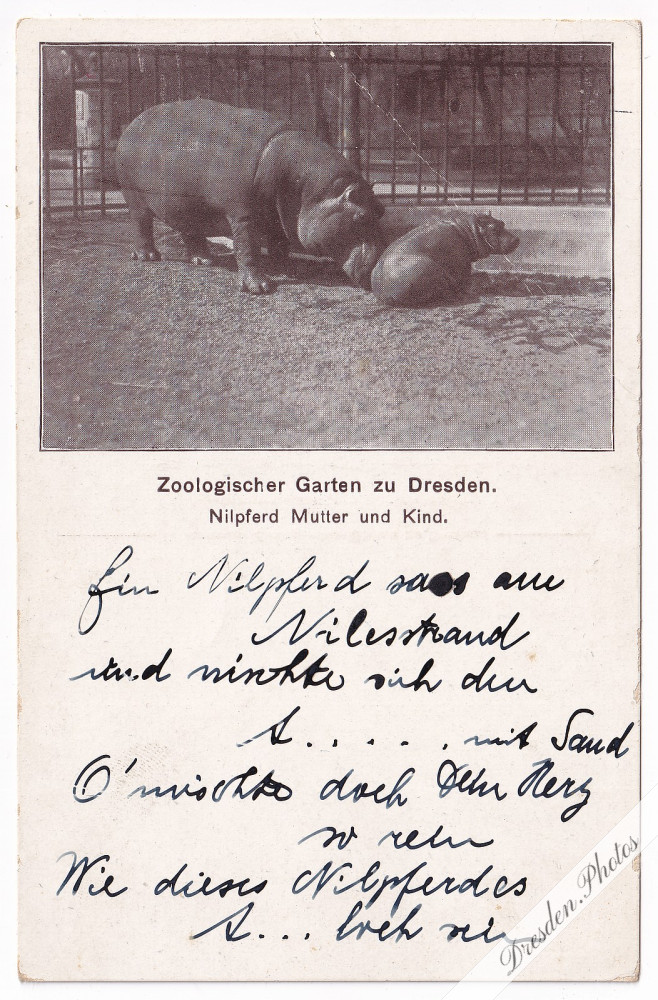 Zoologischer Garten zu Dresden.
Nilpferd Mutter und Kind.
Ein Nilpferd sass am
Nilesstrand
und wischte sich den
A..... mit Sand
O' mischte doch Dein Herz
so rein
Wie dieses Nilpferdes
A... loch sein
Dresden.Photos